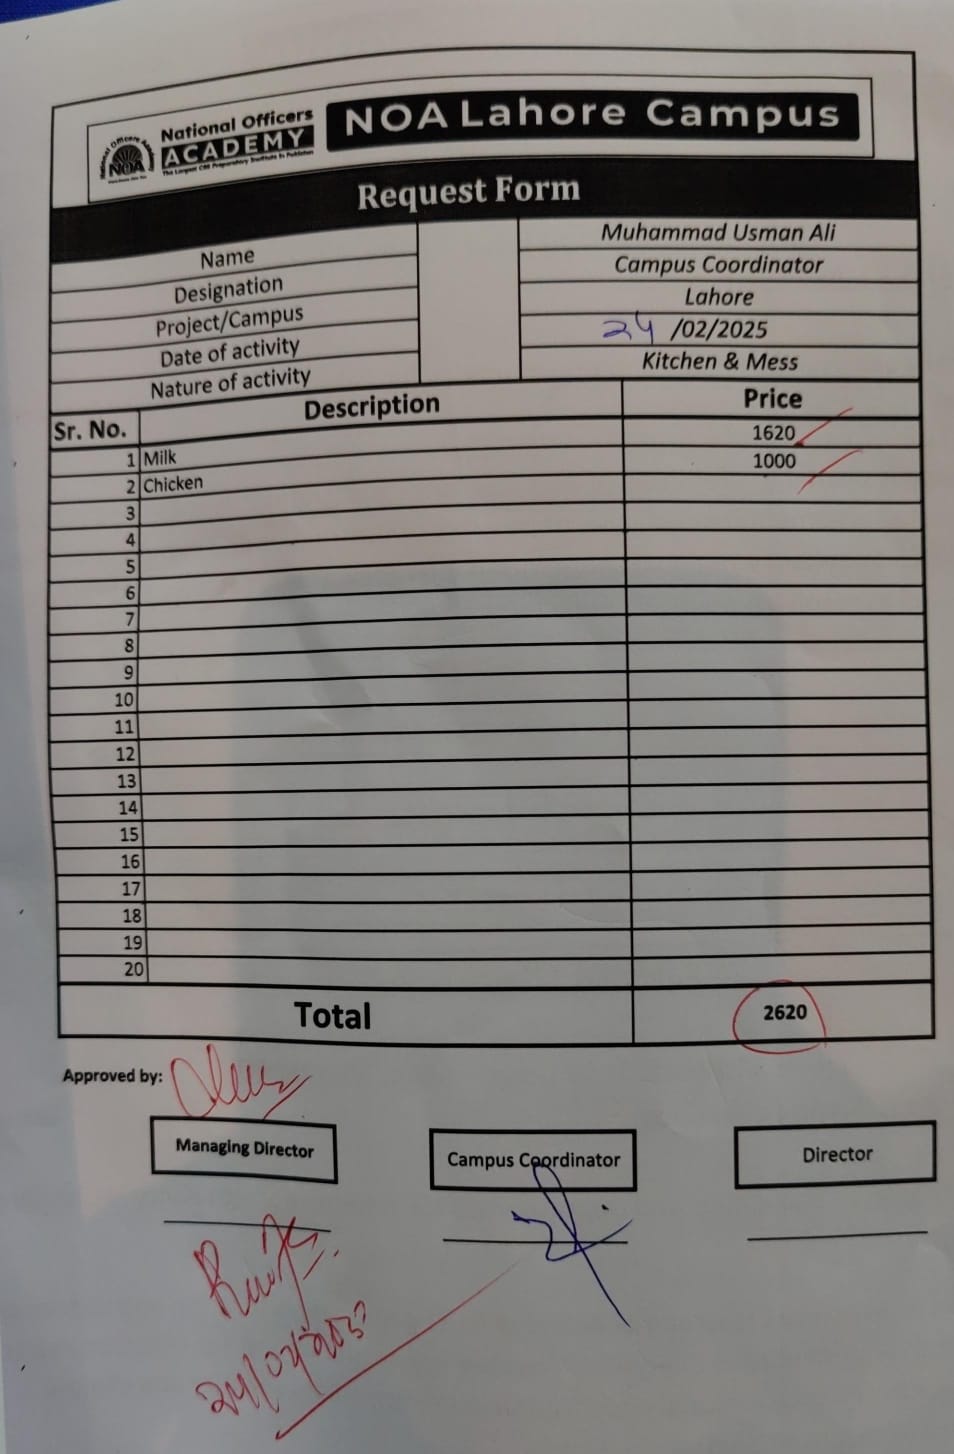 National Officers
ACADEMY
The Largest CSS Preparatory Institute In Pakistan
NOA
NOA Lahore Campus
Request Form
Name Muhammad Usman Ali
Designation Campus Coordinator
Project/Campus Lahore
Date of activity 24 /02/2025
Nature of activity Kitchen & Mess
Sr. No. Description Price
1 Milk 1620
2 Chicken 1000
3
4
5
6
7
8
9
10
11
12
13
14
15
16
17
18
19
20
Total 2620
Approved by:
Managing Director Campus Coordinator Director